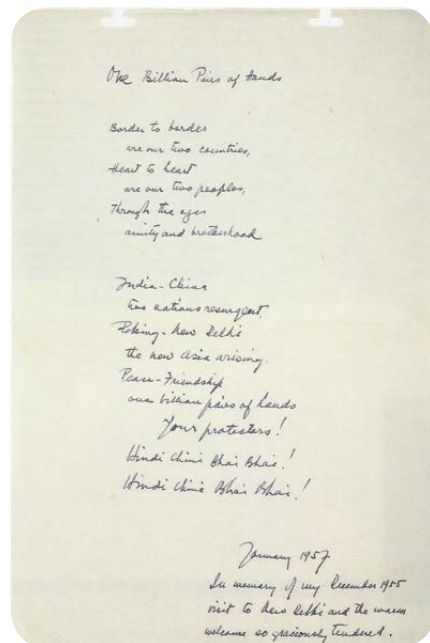 One Billion Pairs of Hands
Border to border
are our two countries,
Heart to heart
are our two peoples,
Through the ages
amity and brotherhood
India - China
two nations resurgent,
Peking - New Delhi
the new Asia arising.
Peace - Friendship
one billion pairs of hands
Your protectors!
Hindi Chini Bhai Bhai!
Hindi Chini Bhai Bhai!
January 1957
In memory of my December 1955
visit to New Delhi and the warm
welcome so graciously tendered.